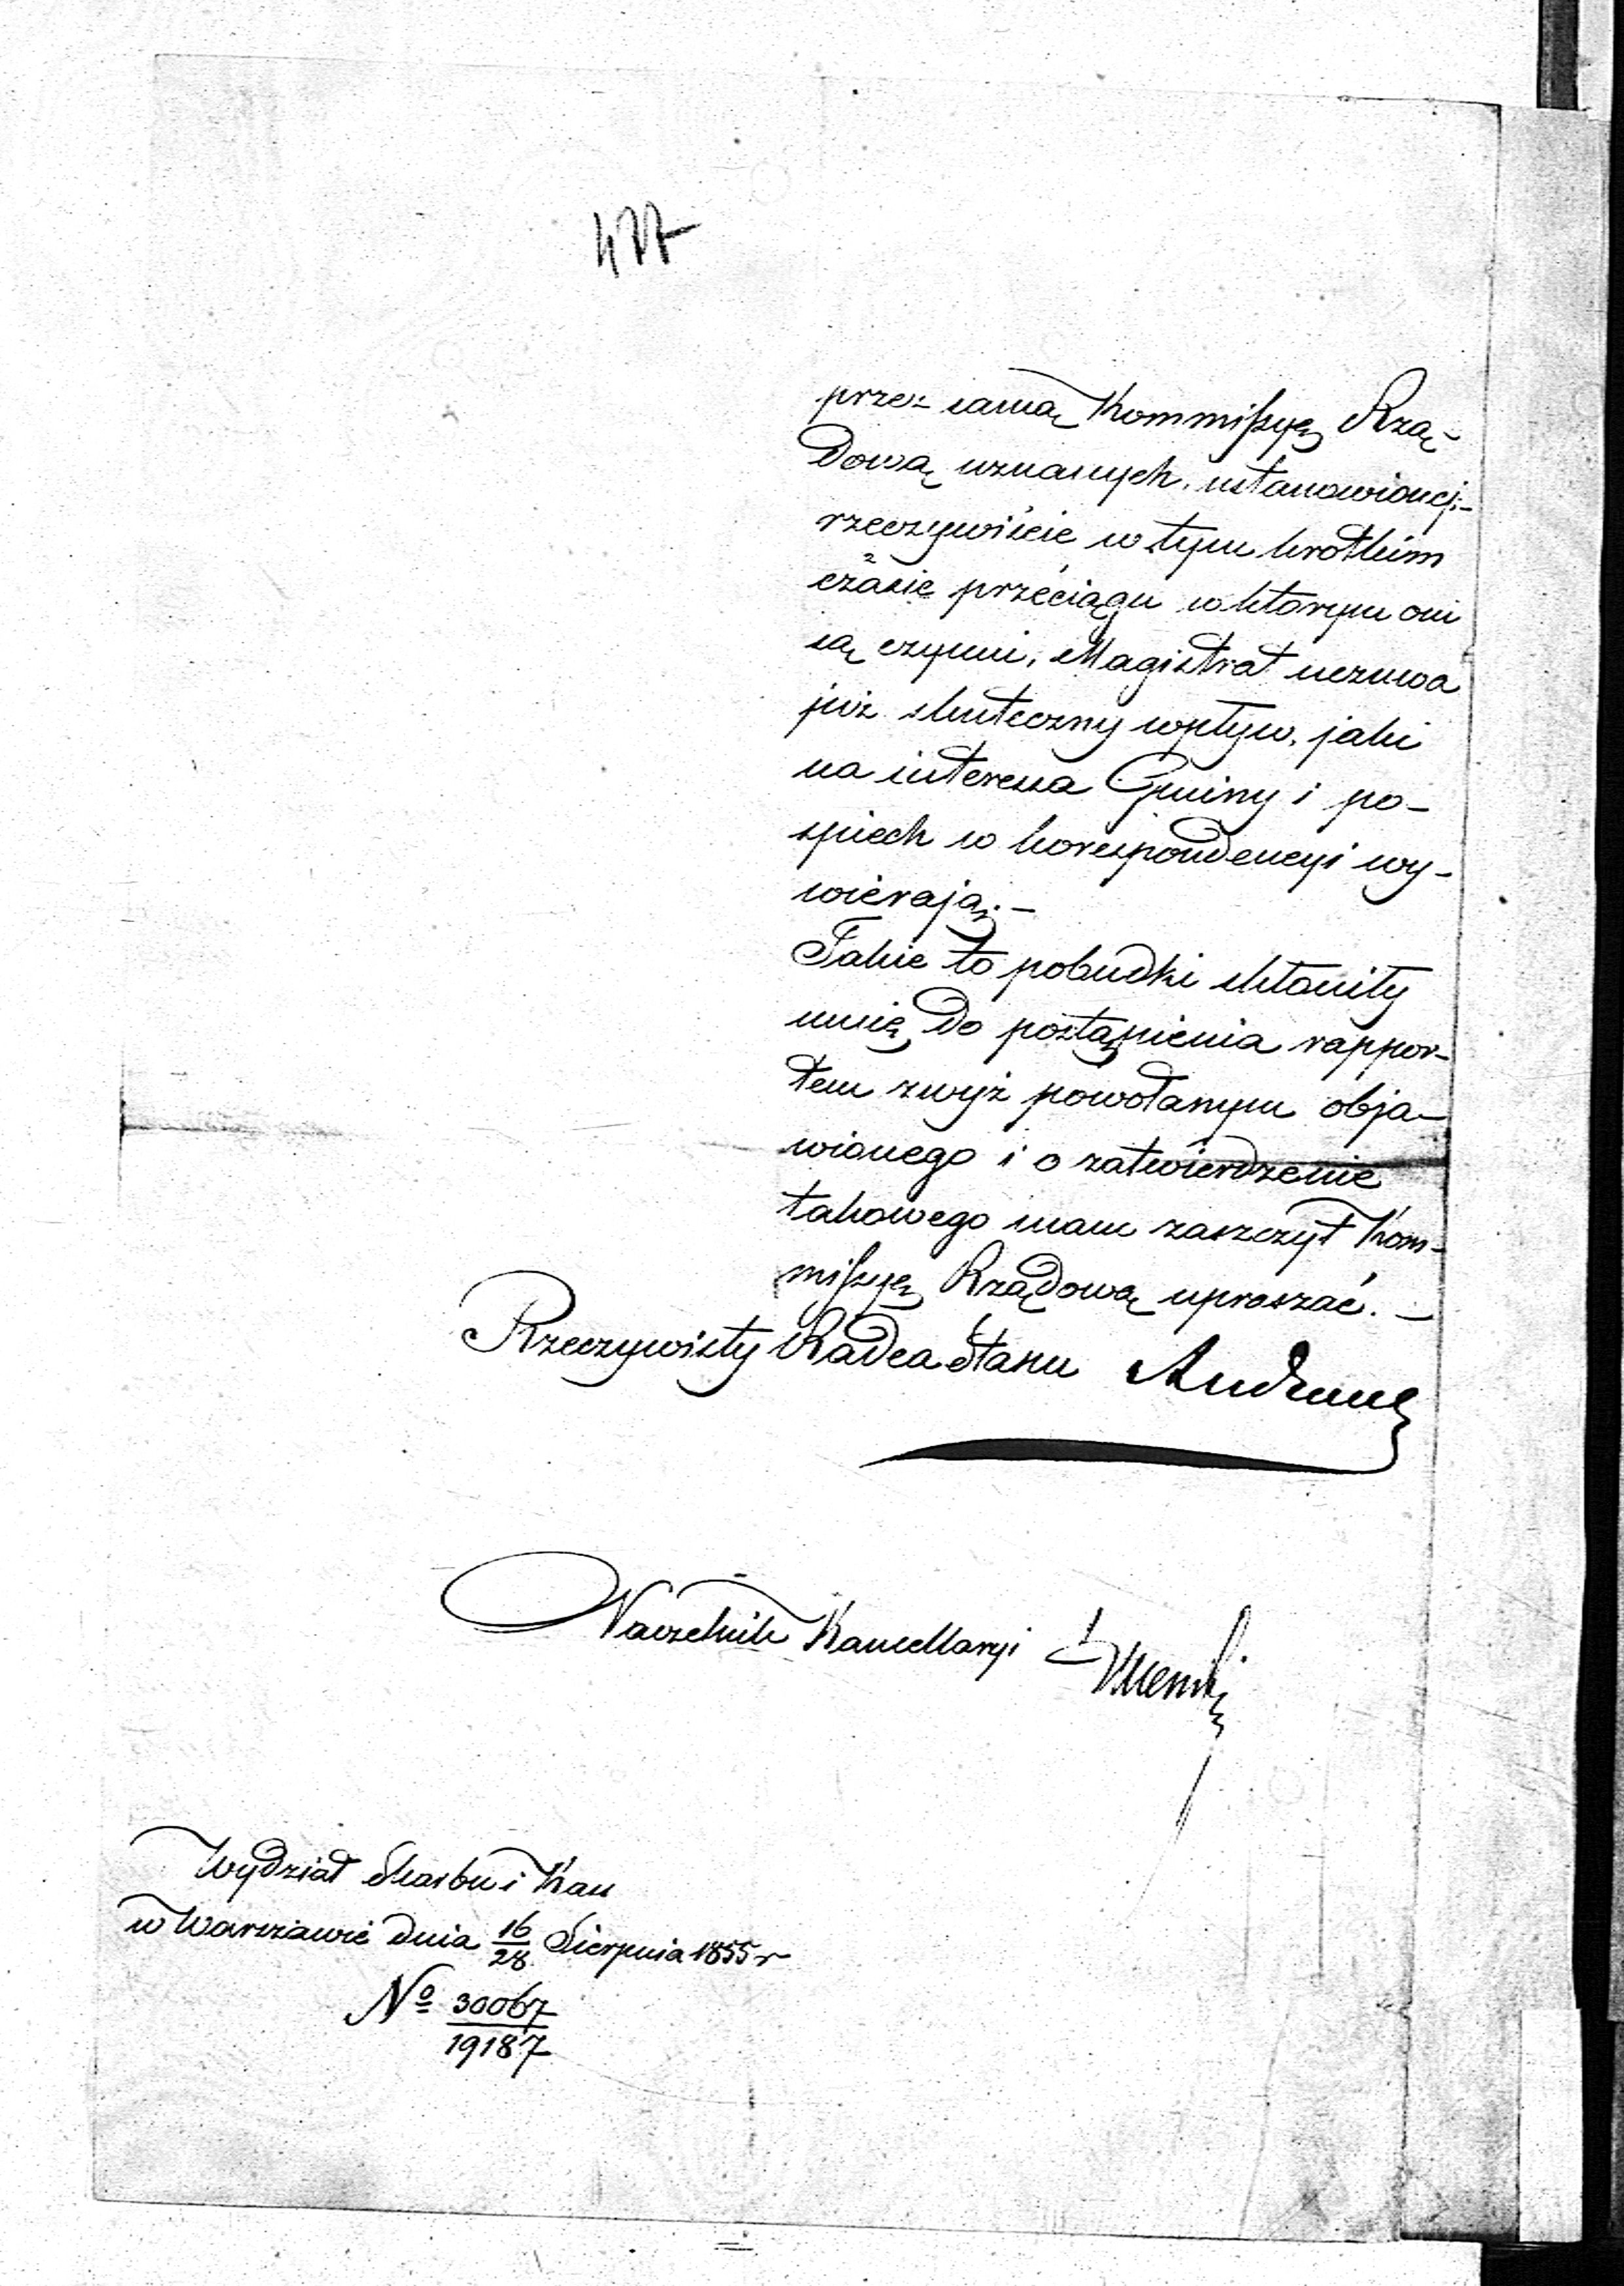 477
przez samą Kommissyę Rzą-
dową uznanych, ustanowionej,-
rzeczywiście w tym krótkim
czasie przeciągu w którym oni
są czynni, Magistrat uczuwa
już skuteczny wpływ, jaki
na interessa Gminy i po-
spiech w korespondencyi wy-
wierają.-
Takie to pobudki skłoniły
mnię do postąpienia rappor-
tem zwyż powołanym obja-
wionego i o zatwierdzenie
takowego mam zaszczyt Kom-
missyę Rządową upraszać.-
Rzeczywisty Radca Stanu Andrault
Naczelnik Kancellaryi
Wydział Skarbu i Kan
w Warszawie dnia 16/28 Sierpnia 1855 r
No 30067/19187